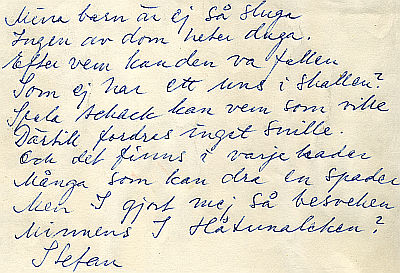 Mina barn är ej så sluga
Ingen av dom heter duga.
Efter vem kan den va fallen
Som ej har ett uns i skallen?
Spela schack kan vem som ville
Därtill fordras inget snille.
Och det finns i varje kader
Många som kan dra en spader
Men I gjort mej så besviken
Minnens I Håtunaleken?
Stefan